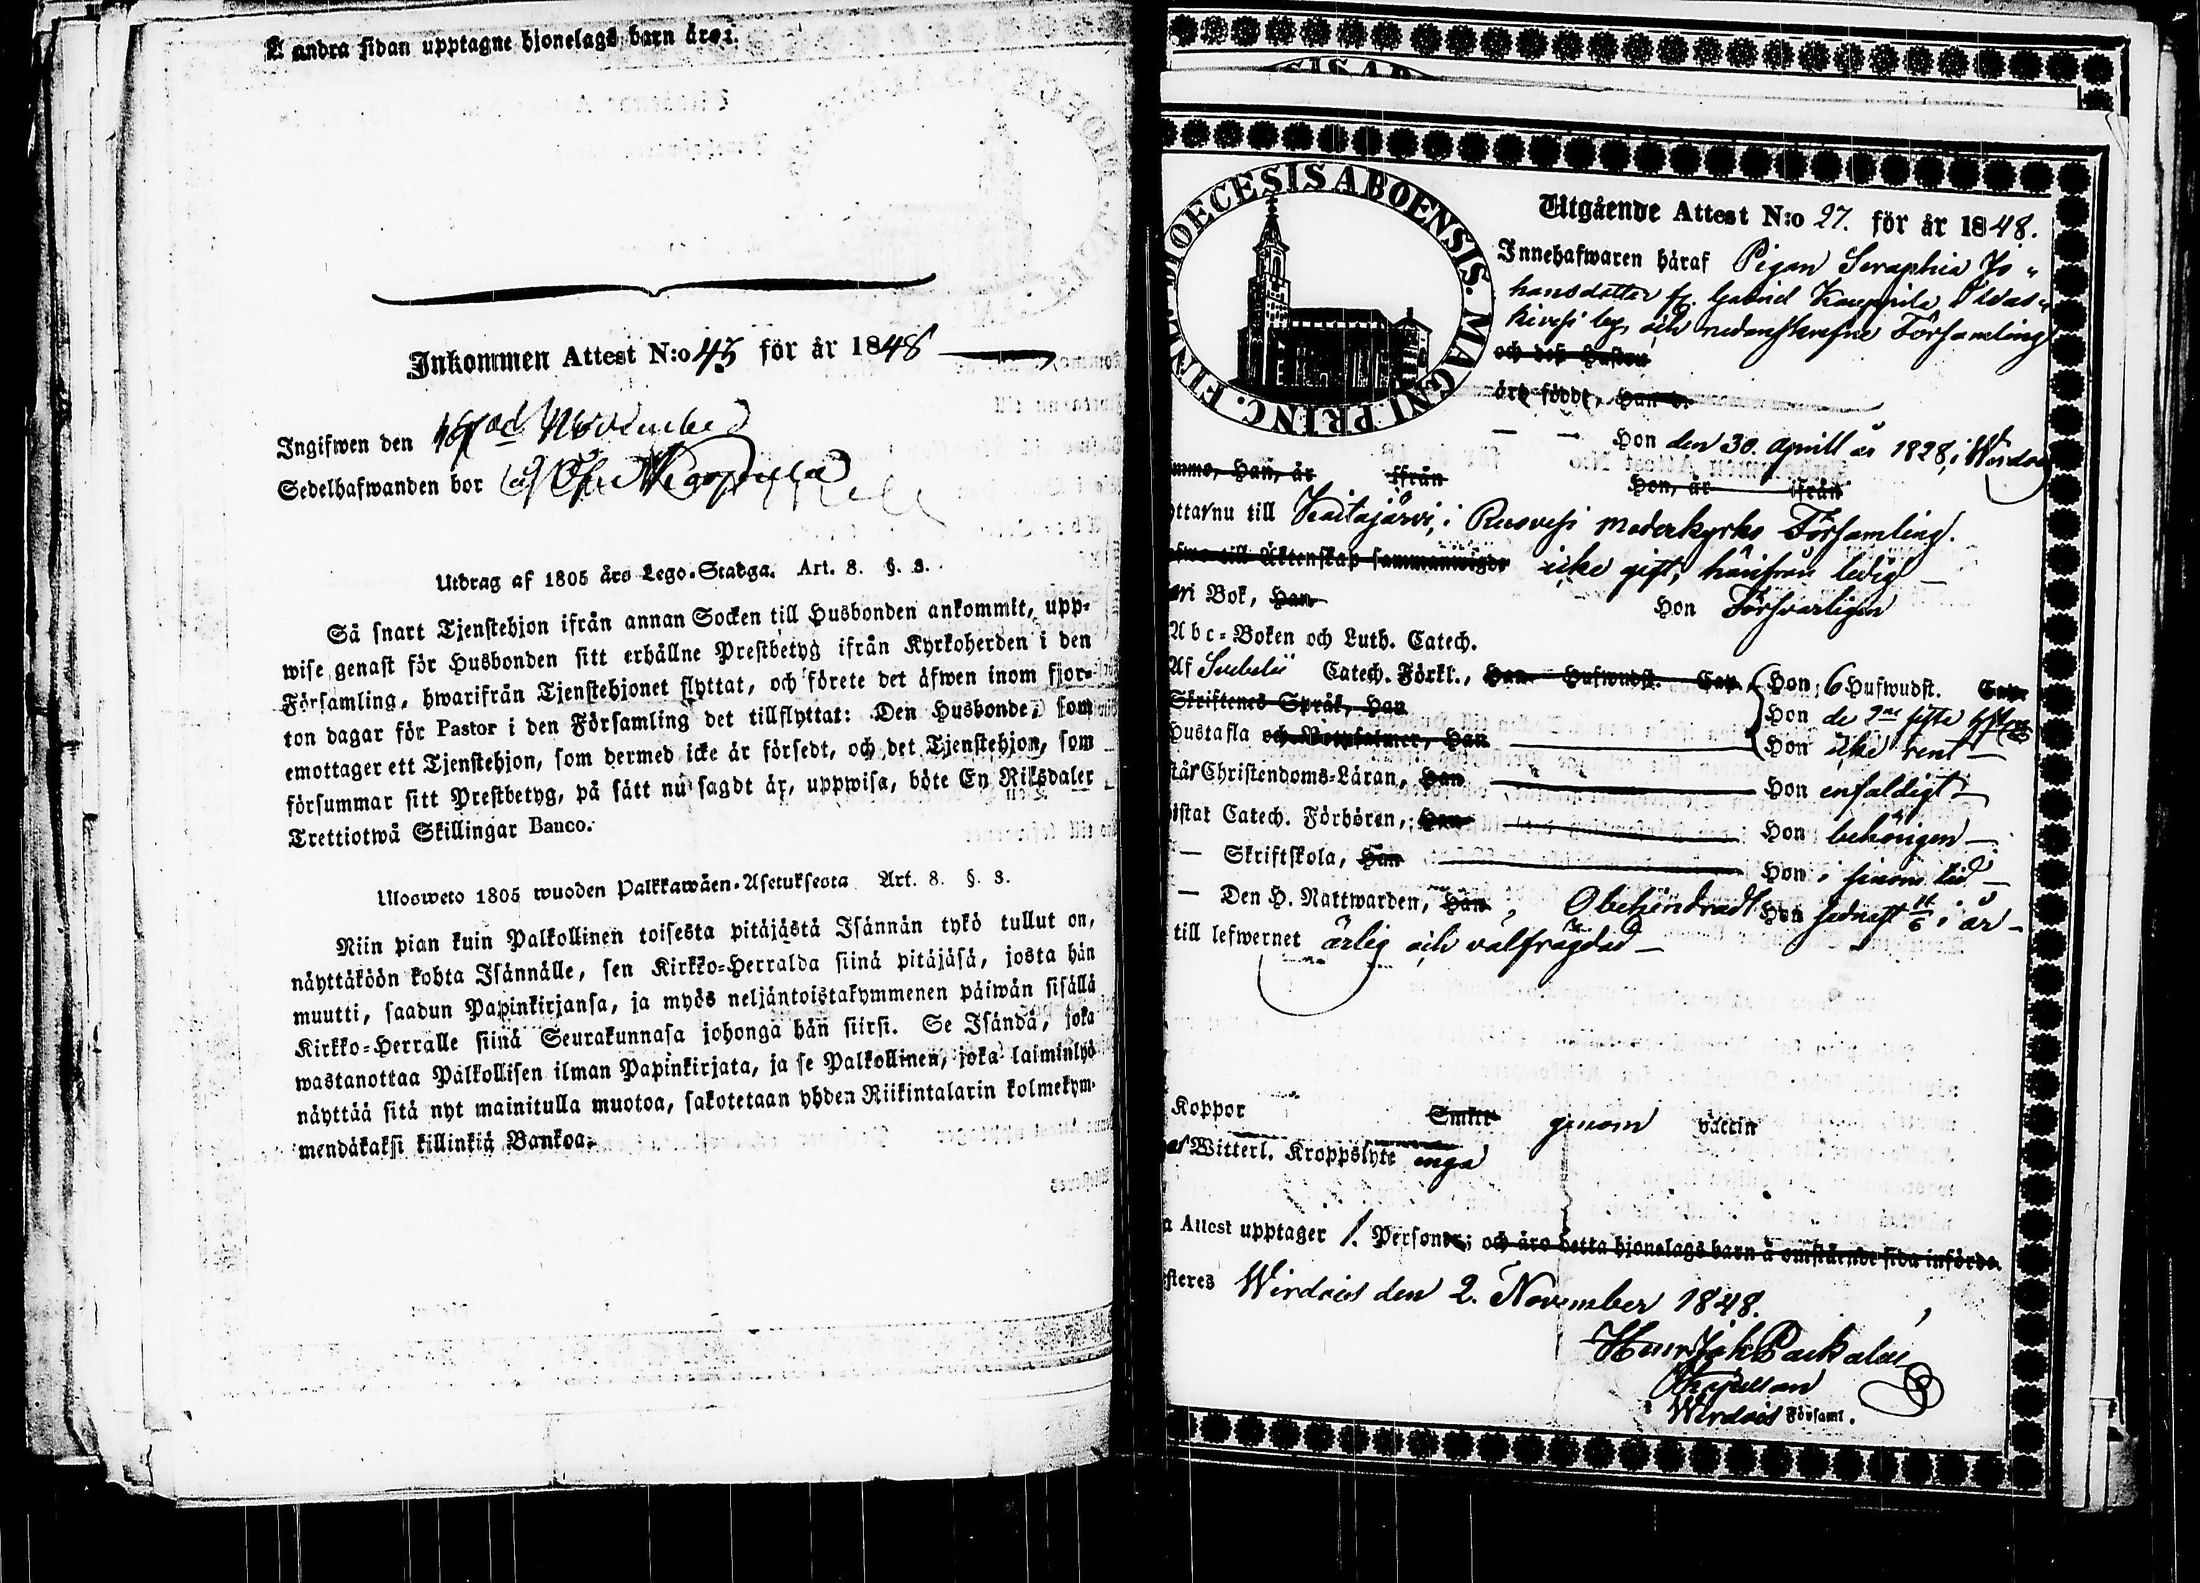 Å andra sidan upptagne hjonelags barn äro:
Inkommen Attest N:o 43 för år 1848
Ingifwen den November
Sedelhafwanden bor
Utdrag af 1805 års Lego-Stadga. Art. 8. §. 3.
Så snart Tjenstehjon ifrån annan Socken till Husbonden ankommit, upp-
wise genast för Husbonden sitt erhållne Prestbetyg ifrån Kyrkoherden i den
Församling, hwarifrån Tjenstehjonet flyttat, och förete det äfwen inom fjor-
ton dagar för Pastor i den Församling det tillflyttat: Den Husbonde, som
emottager ett Tjenstehjon, som dermed icke är försedt, och det Tjenstehjon, som
försummar sitt Prestbetyg, på sätt nu sagdt är, uppwisa, böte En Riksdaler
Trettiotwå Skillingar Banco.
Ulosweto 1805 wuoden Palkkawäen-Asetuksesta Art. 8. §. 3.
Niin pian kuin Palkollinen toisesta pitäjästä Isännän tykö tullut on,
näyttäköön kohta Isännälle, sen Kirkko-Herralda siinä pitäjäsä, josta hän
muutti, saadun Papinkirjansa, ja myös neljäntoistakymmenen päiwän sisällä
Kirkko-Herralle siinä Seurakunnasa johonga hän siirsi. Se Isändä, joka
wastanottaa Palkollisen ilman Papinkirjata, ja se Palkollinen, joka laiminlyö
näyttää sitä nyt mainitulla muotoa, sakotetaan yhden Riikintalarin kolmekym-
mendäkaksi killinkiä Bankoa.
DIOECESIS ABOENSIS. MAGNI PRINC. FINL.
Utgående Attest N:o 27. för år 1848.
Innehafwaren häraf Pigan Seraphia Jo-
hansdotter fr. Gabriel Kauppila
och nedanskrefne Församling
och deß Hustru
äro födde, Han d.
Hon den 30. Aprill år 1828, i Wirdois
Han, år ifrån Hon, år ifrån
nu till Kaitajärvi, i Ruovesi moderkyrko Församling.
till Äktenskap sammanwigde icke gift, härifrån ledig
i Bok, Han Hon Försvarligen
Abc-Boken och Luth. Catech.
Af Svebelii Catech. Förkl., Han Hufwudst. Cap. Hon 6 Hufwudst. Cap.
Skriftenes Språk, Han Hon de 2ne sista
Hustafla och Botpsalmer, Han Hon icke rent
Christendoms-Läran, Han Hon enfaldigt
Catech. Förhören, Han Hon behörigen
— Skriftskola, Han Hon i sinom tid
— Den H. Nattwarden, Han, Obehindradt Hon sednast i år
till lefwernet ärlig och välfrägdad
Koppor Smitte genom vaccin
Witterl. Kroppslyte inga
Attest upptager 1. Personer; och äro detta hjonelags barn å omstående sida införde.
Wirdois den 2. November 1848.
Kapellan
Wirdois Församl.